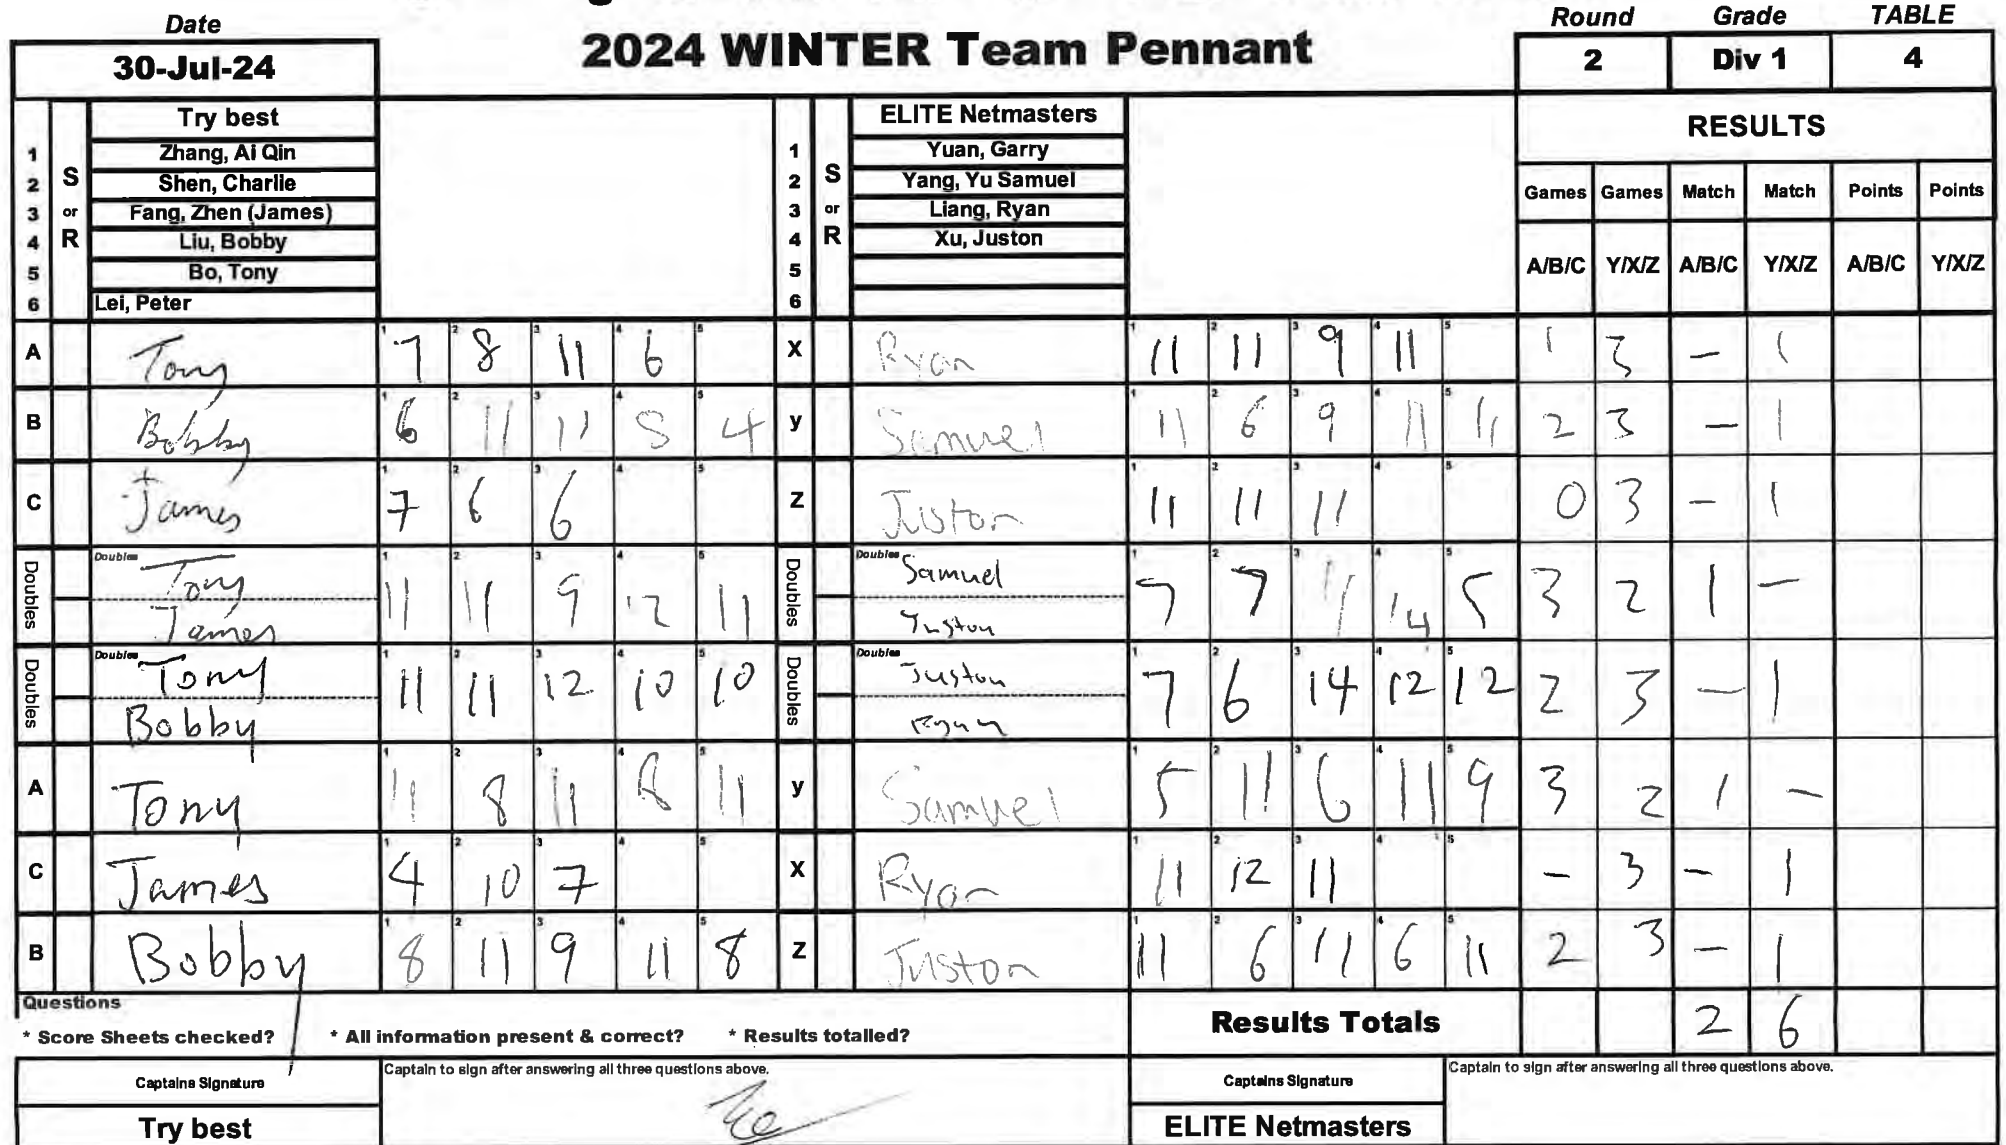 Date
30-Jul-24
2024 WINTER Team Pennant
Round Grade TABLE
2 Div 1 4
S or R Try best
1 Zhang, Ai Qin
2 Shen, Charlie
3 Fang, Zhen (James)
4 Liu, Bobby
5 Bo, Tony
6 Lei, Peter
S or R ELITE Netmasters
1 Yuan, Garry
2 Yang, Yu Samuel
3 Liang, Ryan
4 Xu, Juston
5
6
RESULTS
Games Games Match Match Points Points
A/B/C Y/X/Z A/B/C Y/X/Z A/B/C Y/X/Z
A Tony 7 8 11 6 X Ryan 11 11 9 11 1 3 – 1
B Bobby 6 11 11 8 4 y Samuel 11 6 9 11 11 2 3 – 1
C James 7 6 6 Z Juston 11 11 11 0 3 – 1
Doubles Doubles Tony 11 11 9 12 11 Doubles Doubles Samuel 7 7 11 14 5 3 2 1 –
James Juston
Doubles Doubles Tony 11 11 12 10 10 Doubles Doubles Juston 7 6 14 12 12 2 3 – 1
Bobby Ryan
A Tony 11 8 11 8 11 y Samuel 5 11 6 11 9 3 2 1 –
C James 4 10 7 X Ryan 11 12 11 – 3 – 1
B Bobby 8 11 9 11 8 Z Juston 11 6 11 6 11 2 3 – 1
Questions
* Score Sheets checked? * All information present & correct? * Results totalled?
Results Totals 2 6
Captains Signature Captain to sign after answering all three questions above.
Try best
Captains Signature Captain to sign after answering all three questions above.
ELITE Netmasters